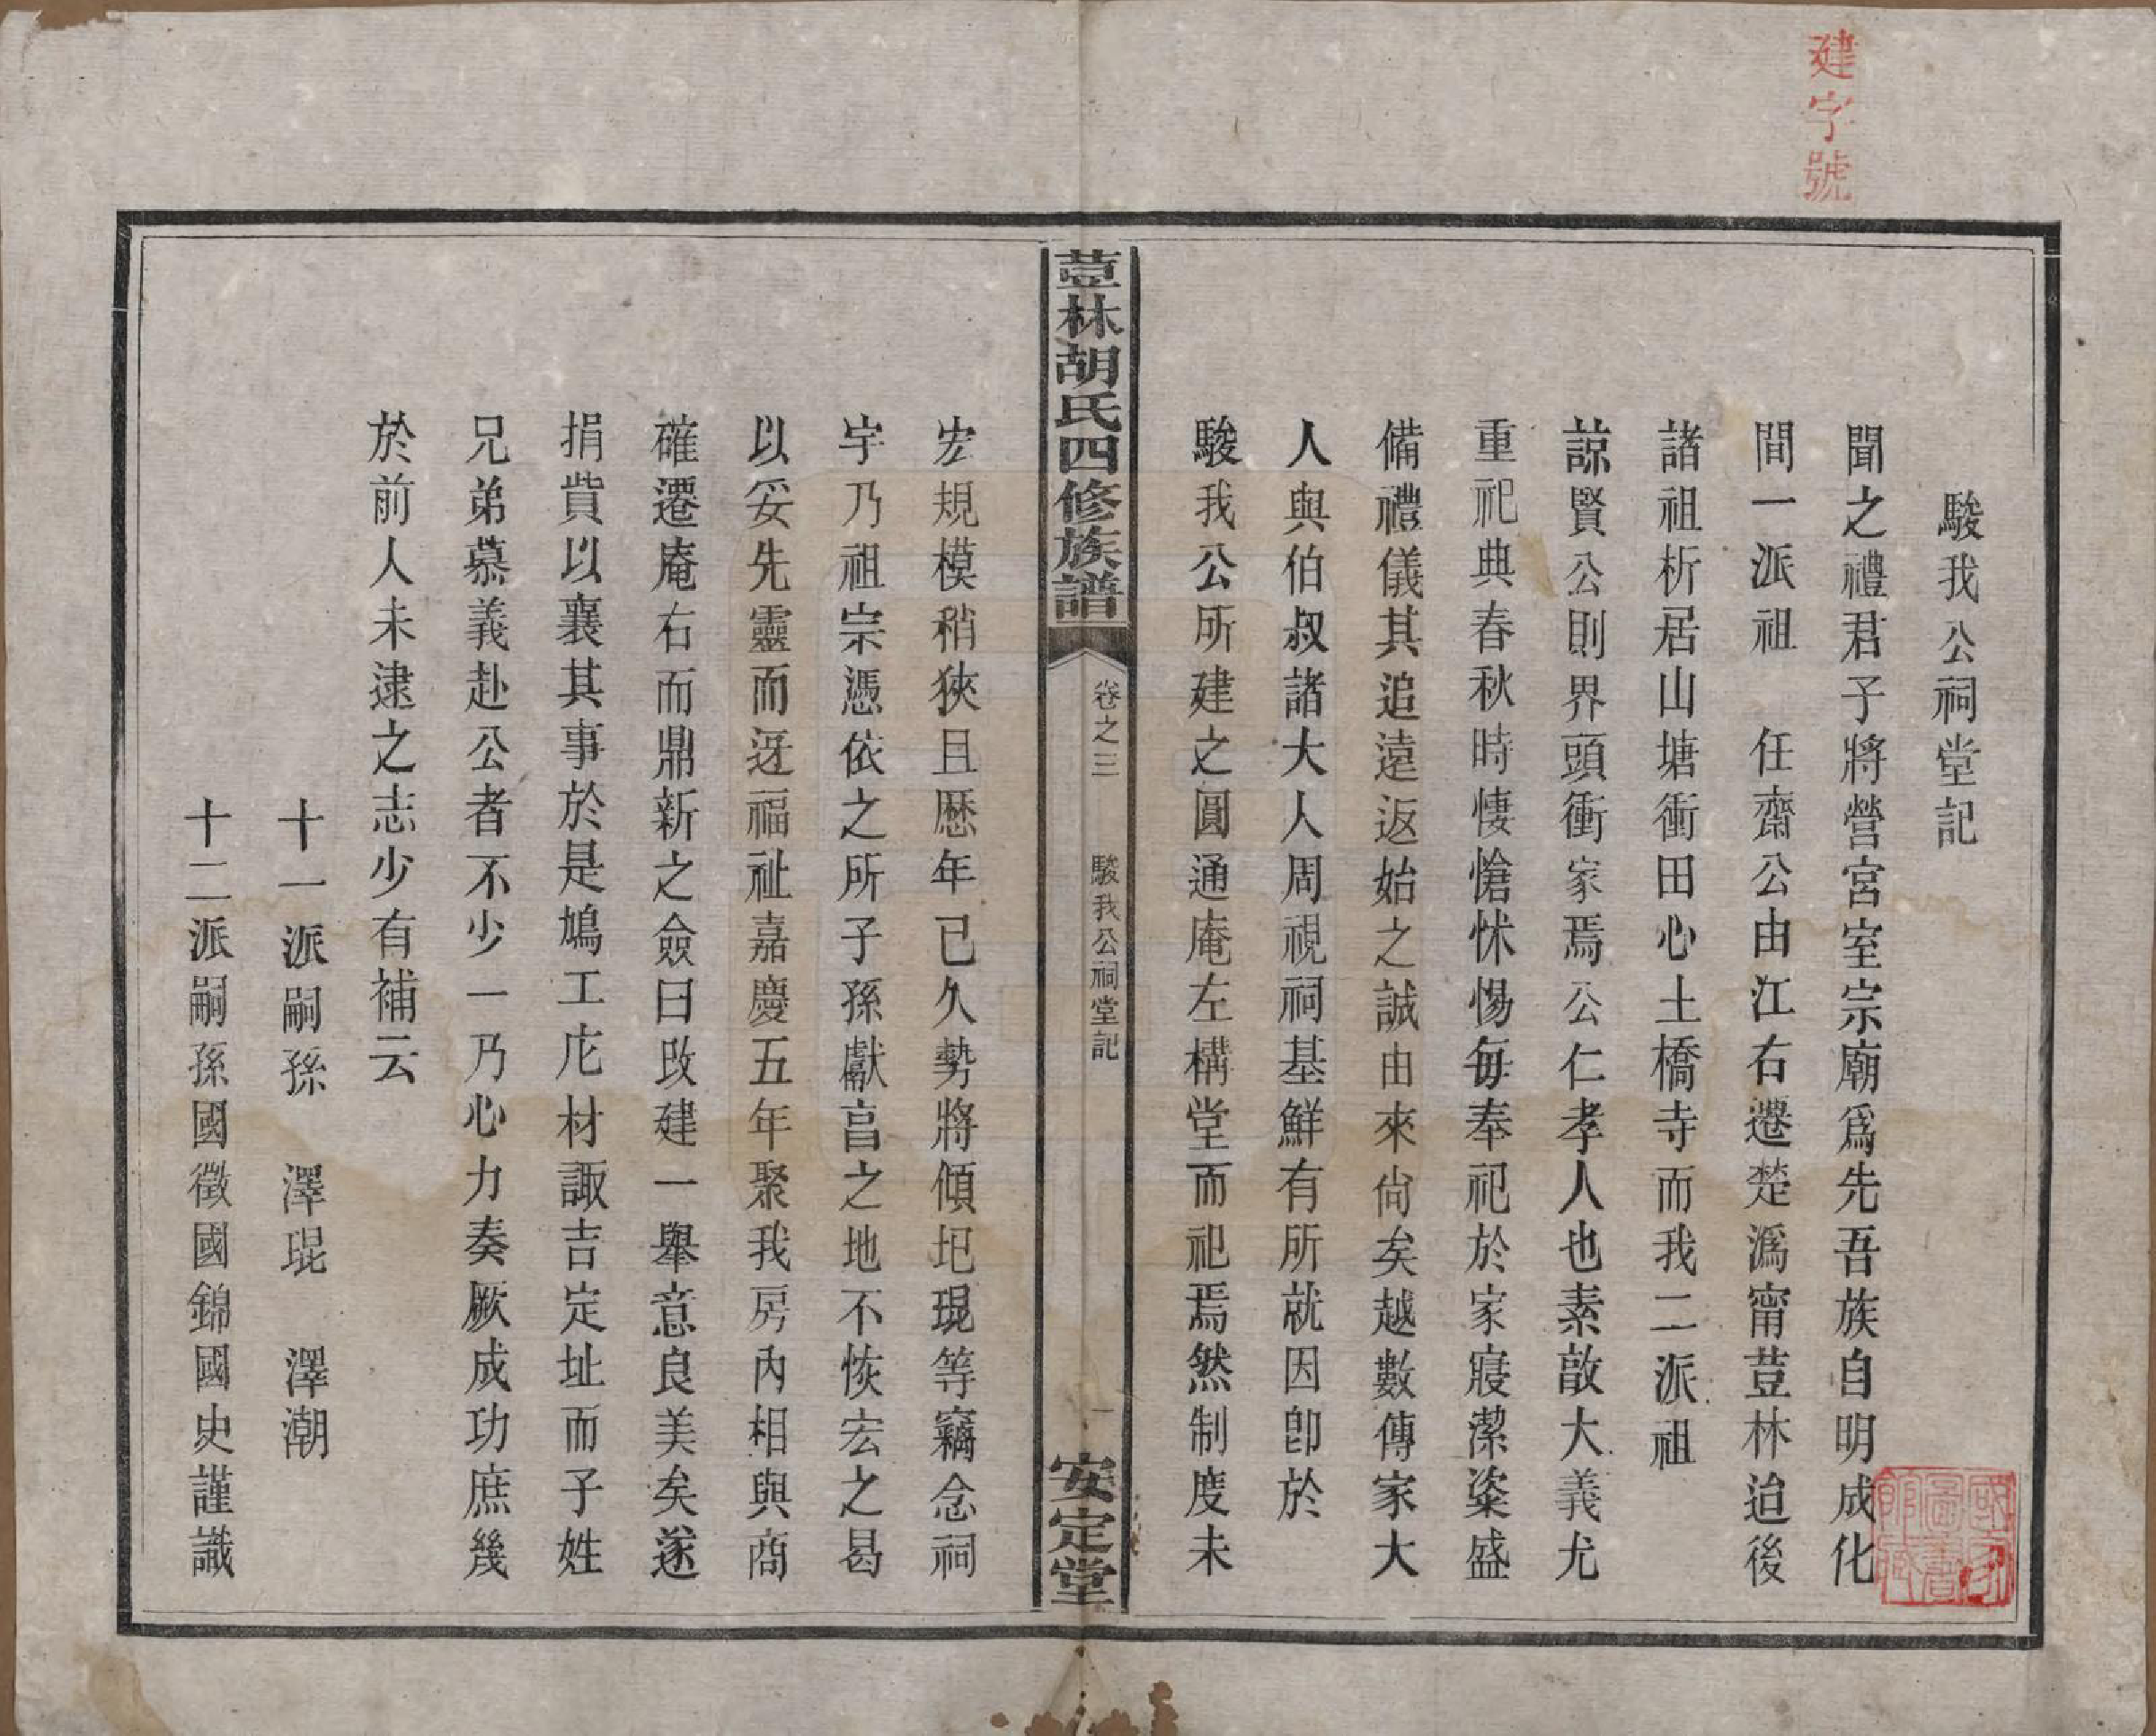 建字號
駿我公祠堂記
聞之禮君子將營宮室宗廟爲先吾族自明成化
間一派祖　任齋公由江右遷楚溈甯荳林迨後
諸祖析居山塘衝田心土橋寺而我二派祖
諒賢公則界頭衝家焉公仁孝人也素敔大義尤
重祀典春秋時悽愴怵惕每奉祀於家寢潔粢盛
備禮儀其追遠返始之誠由來尙矣越數傳家大
人與伯叔諸大人周視祠基鮮有所就因卽於
駿我公所建之圓通庵左構堂而祀焉然制度未
荳林胡氏四修族譜
卷之三
駿我公祠堂記
一
安定堂
宏規模稍狹且歷年已久勢將傾圯琨等竊念祠
宇乃祖宗憑依之所子孫獻亯之地不恢宏之曷
以妥先靈而迓福祉嘉慶五年聚我房內相與商
確遷庵右而鼎新之僉曰改建一舉意良美矣遂
捐貲以襄其事於是鳩工庀材諏吉定址而子姓
兄弟慕義赴公者不少一乃心力奏厥成功庶幾
於前人未逮之志少有補云
十一派嗣孫　澤琨　澤潮
十二派嗣孫國徵國錦國史謹識